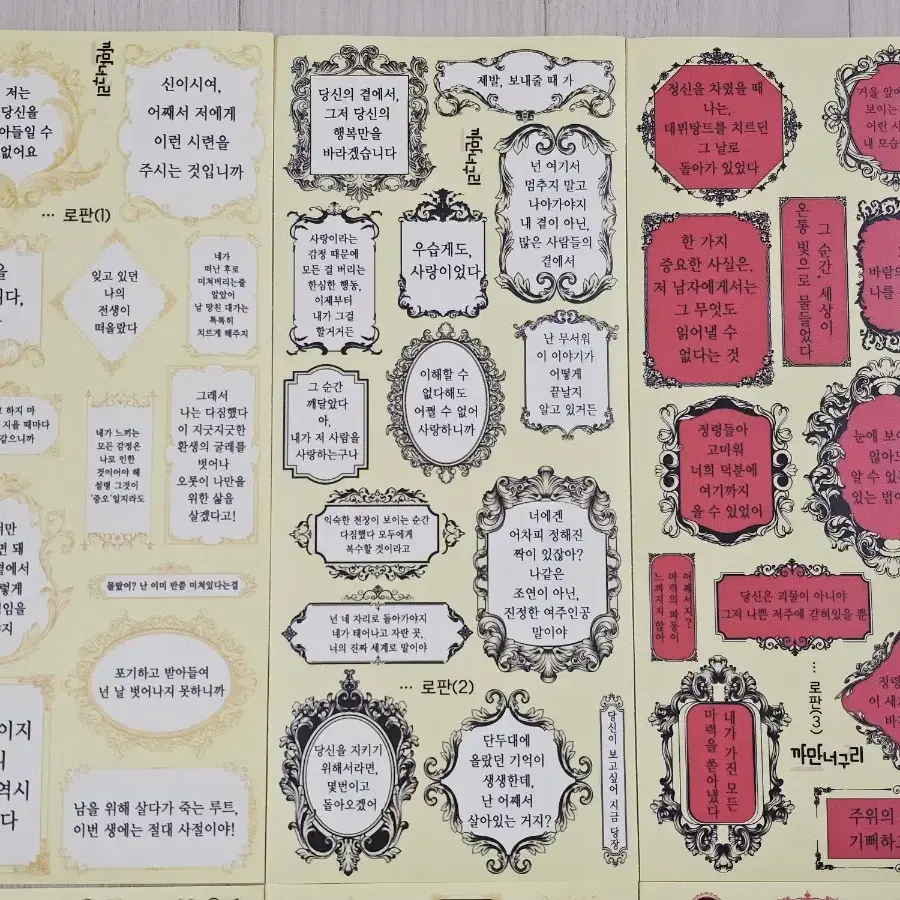 까만너구리
저는
당신을
없어요
신이시여,
어째서 저에게
이런 시련을
주시는 것입니까
... 로판(1)
잊고 있던
나의
전생이
떠올랐다
네가
떠난 후로
미쳐버리는줄
알았어
날 망친 대가는
톡톡히
치르게 해주지
하지 마
지을 때마다
같으니까
네가 느끼는
모든 감정은
나로 인한
것이어야 해
설령 그것이
'증오'일지라도
그래서
나는 다짐했다
이 지긋지긋한
환생의 굴레를
벗어나
오롯이 나만을
위한 삶을
살겠다고!
몰랐어? 난 이미 반쯤 미쳐있다는걸
포기하고 받아들여
넌 날 벗어나지 못하니까
남을 위해 살다가 죽는 루트,
이번 생에는 절대 사절이야!
당신의 곁에서,
그저 당신의
행복만을
바라겠습니다
제발, 보내줄 때 가
까만너구리
넌 여기서
멈추지 말고
나아가야지
내 곁이 아닌,
많은 사람들의
곁에서
사랑이라는
감정 때문에
모든 걸 버리는
한심한 행동,
이제부터
내가 그걸
할거거든
우습게도,
사랑이었다
난 무서워
이 이야기가
어떻게
끝날지
알고 있거든
그 순간
깨달았다
아,
내가 저 사람을
사랑하는구나
이해할 수
없다해도
어쩔 수 없어
사랑하니까
익숙한 천장이 보이는 순간
다짐했다 모두에게
복수할 것이라고
너에겐
어차피 정해진
짝이 있잖아?
나같은
조연이 아닌,
진정한 여주인공
말이야
넌 네 자리로 돌아가야지
네가 태어나고 자란 곳,
너의 진짜 세계로 말이야
... 로판(2)
당신을 지키기
위해서라면,
몇번이고
돌아오겠어
단두대에
올랐던 기억이
생생한데,
난 어째서
살아있는 거지?
당신이 보고싶어 지금 당장
정신을 차렸을 때
나는,
데뷔탕트를 치르던
그 날로
돌아가 있었다
거울 앞에
보이는
어린 시
내 모습
한 가지
중요한 사실은,
저 남자에게서는
그 무엇도
읽어낼 수
없다는 것
그 순간, 세상이
온통 빛으로 물들었다
바람의
나를
정령들아
고마워
너희 덕분에
여기까지
올 수 있었어
눈에 보이
않아도
알 수 있는
있는 법이
어째서지?
마력의 파동이
느껴지지 않아
당신은 괴물이 아니야
그저 나쁜 저주에 갇혀있을 뿐
... 로판(3)
까만너구리
내가 가진 모든
마력을 쏟아냈다
정령
이 세계
주위의
기뻐하고